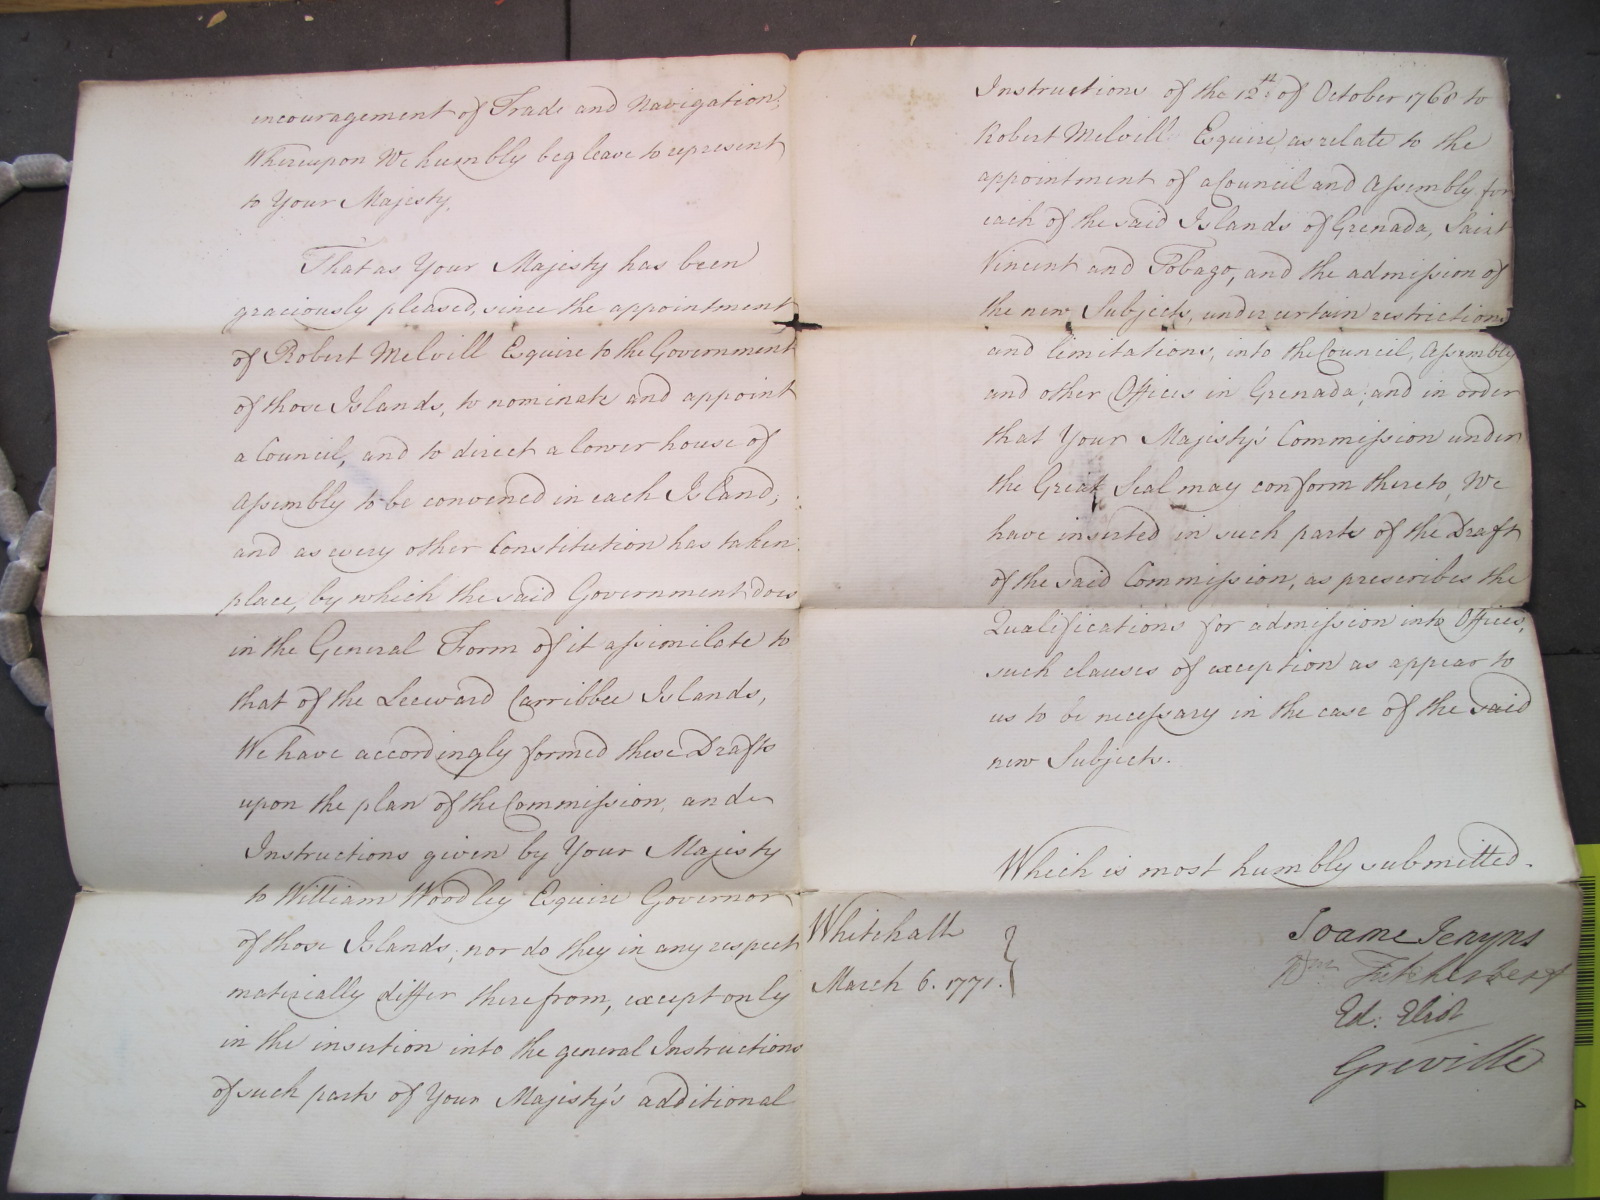 encouragement of Trade and Navigation;
Whereupon We humbly beg leave to represent
to Your Majesty,
That as Your Majesty has been
graciously pleased, since the appointment
of Robert Melvill Esquire to the Government
of those Islands, to nominate and appoint
a Council, and to direct a lower house of
Assembly to be convened in each Island;
and as every other Constitution has taken
place, by which the said Government does
in the General Form of it assimilate to
that of the Leeward Carribbee Islands,
We have accordingly formed these Drafts
upon the plan of the Commission, and
Instructions given by Your Majesty
to William Woodley Esquire Governor
of those Islands; nor do they in any respect
materially differ therefrom, except only
in the insertion into the general Instructions
of such parts of Your Majesty's additional
Instructions of the 12th. of October 1768 to
Robert Melvill Esquire, as relate to the
appointment of a Council and Assembly for
each of the said Islands of Grenada, Saint
Vincent and Tobago, and the admission of
the new Subjects, under certain restrictions
and limitations, into the Council, Assembly
and other Offices in Grenada; and in order
that Your Majesty's Commission under
the Great Seal may conform thereto, We
have inserted in such parts of the Draft
of the said Commission, as prescribes the
Qualifications for admission into Offices,
such clauses of exception as appear to
us to be necessary in the case of the said
new Subjects.
Which is most humbly submitted.
Whitehall
March 6. 1771.
Soame Jenyns
Wm. Fitzherbert
Ed: Eliot
Greville